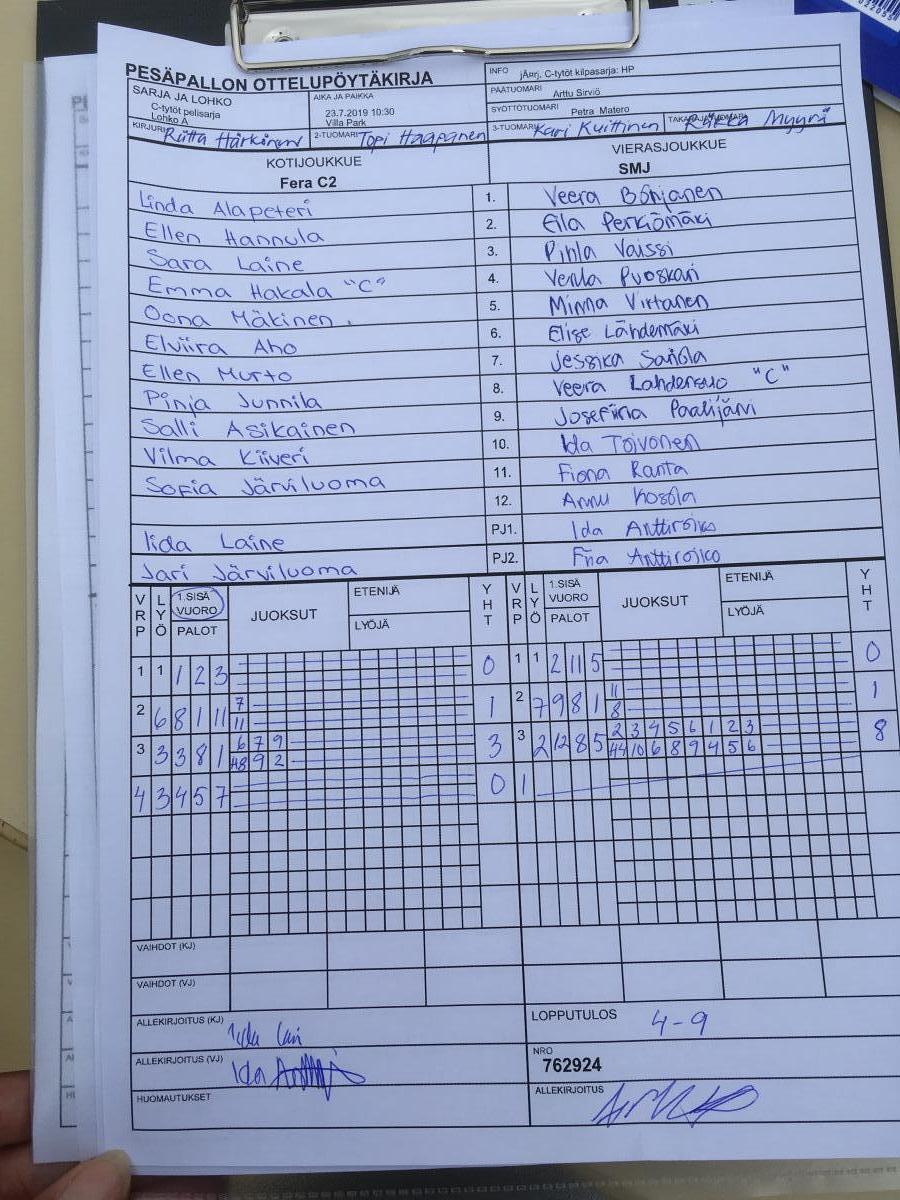 PESÄPALLON OTTELUPÖYTÄKIRJA
INFO jÄrrj, C-tytöt kilpasarja: HP
SARJA JA LOHKO
C-tytöt pelisarja
Lohko A
AIKA JA PAIKKA
23.7.2019 10:30
Villa Park
PÄÄTUOMARI Arttu Sirviö
SYÖTTÖTUOMARI Petra Matero
KIRJURI Riitta Härkönen 2-TUOMARI Topi Haapanen 3-TUOMARI Kari Kuittinen Myyrä
KOTIJOUKKUE VIERASJOUKKUE
Fera C2 SMJ
Linda Alapeteri 1. Veera Bönjanen
Ellen Hannula 2. Eila Perkiömäki
Sara Laine 3. Pihla Vaissi
Emma Hakala "C" 4. Venla Puoskari
Oona Mäkinen 5. Minna Virtanen
Elviira Aho 6. Elise Lähdemäki
Ellen Murto 7. Jessika Sariola
Pinja Junnila 8. Veera Lahdensuo "C"
Salli Asikainen 9. Josefiina Paalijärvi
Vilma Kiiveri 10. Ida Toivonen
Sofia Järviluoma 11. Fiona Ranta
12. Annu Kosola
Iida Laine PJ1. Ida Anttiroiko
Jari Järviluoma PJ2. Fiia Anttiroiko
VRP LYÖ 1.SISÄ VUORO PALOT JUOKSUT ETENIJÄ LYÖJÄ YHT VRP LYÖ 1.SISÄ VUORO PALOT JUOKSUT ETENIJÄ LYÖJÄ YHT
1 1 1 2 3 0 1 1 2 11 5 0
2 6 8 1 11 7 1 2 7 9 8 1 11 1
11 8
3 3 3 8 1 6 7 9 3 3 2 12 8 5 2 3 4 5 6 1 2 3 8
48 9 2 44 10 6 8 9 4 5 6
4 3 4 5 7 0 1
VAIHDOT (KJ)
VAIHDOT (VJ)
ALLEKIRJOITUS (KJ) LOPPUTULOS 4-9
ALLEKIRJOITUS (VJ) Ida NRO
762924
HUOMAUTUKSET ALLEKIRJOITUS